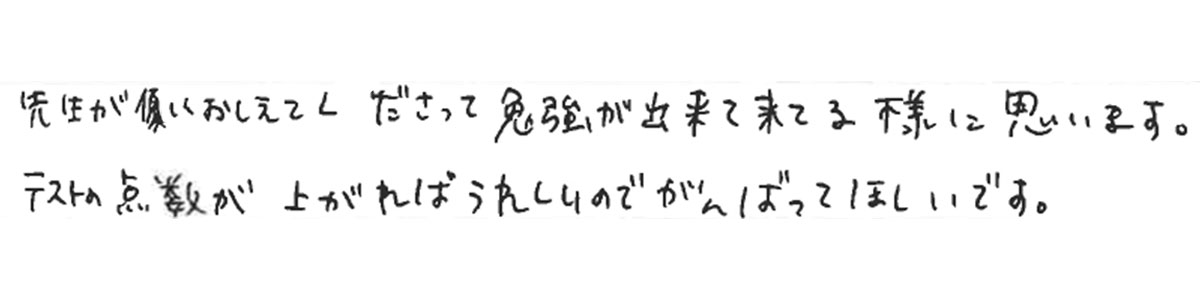 先生が優しくおしえてくださって勉強が出来て来てる様に思います。
テストの点数が上がればうれしいのでがんばってほしいです。